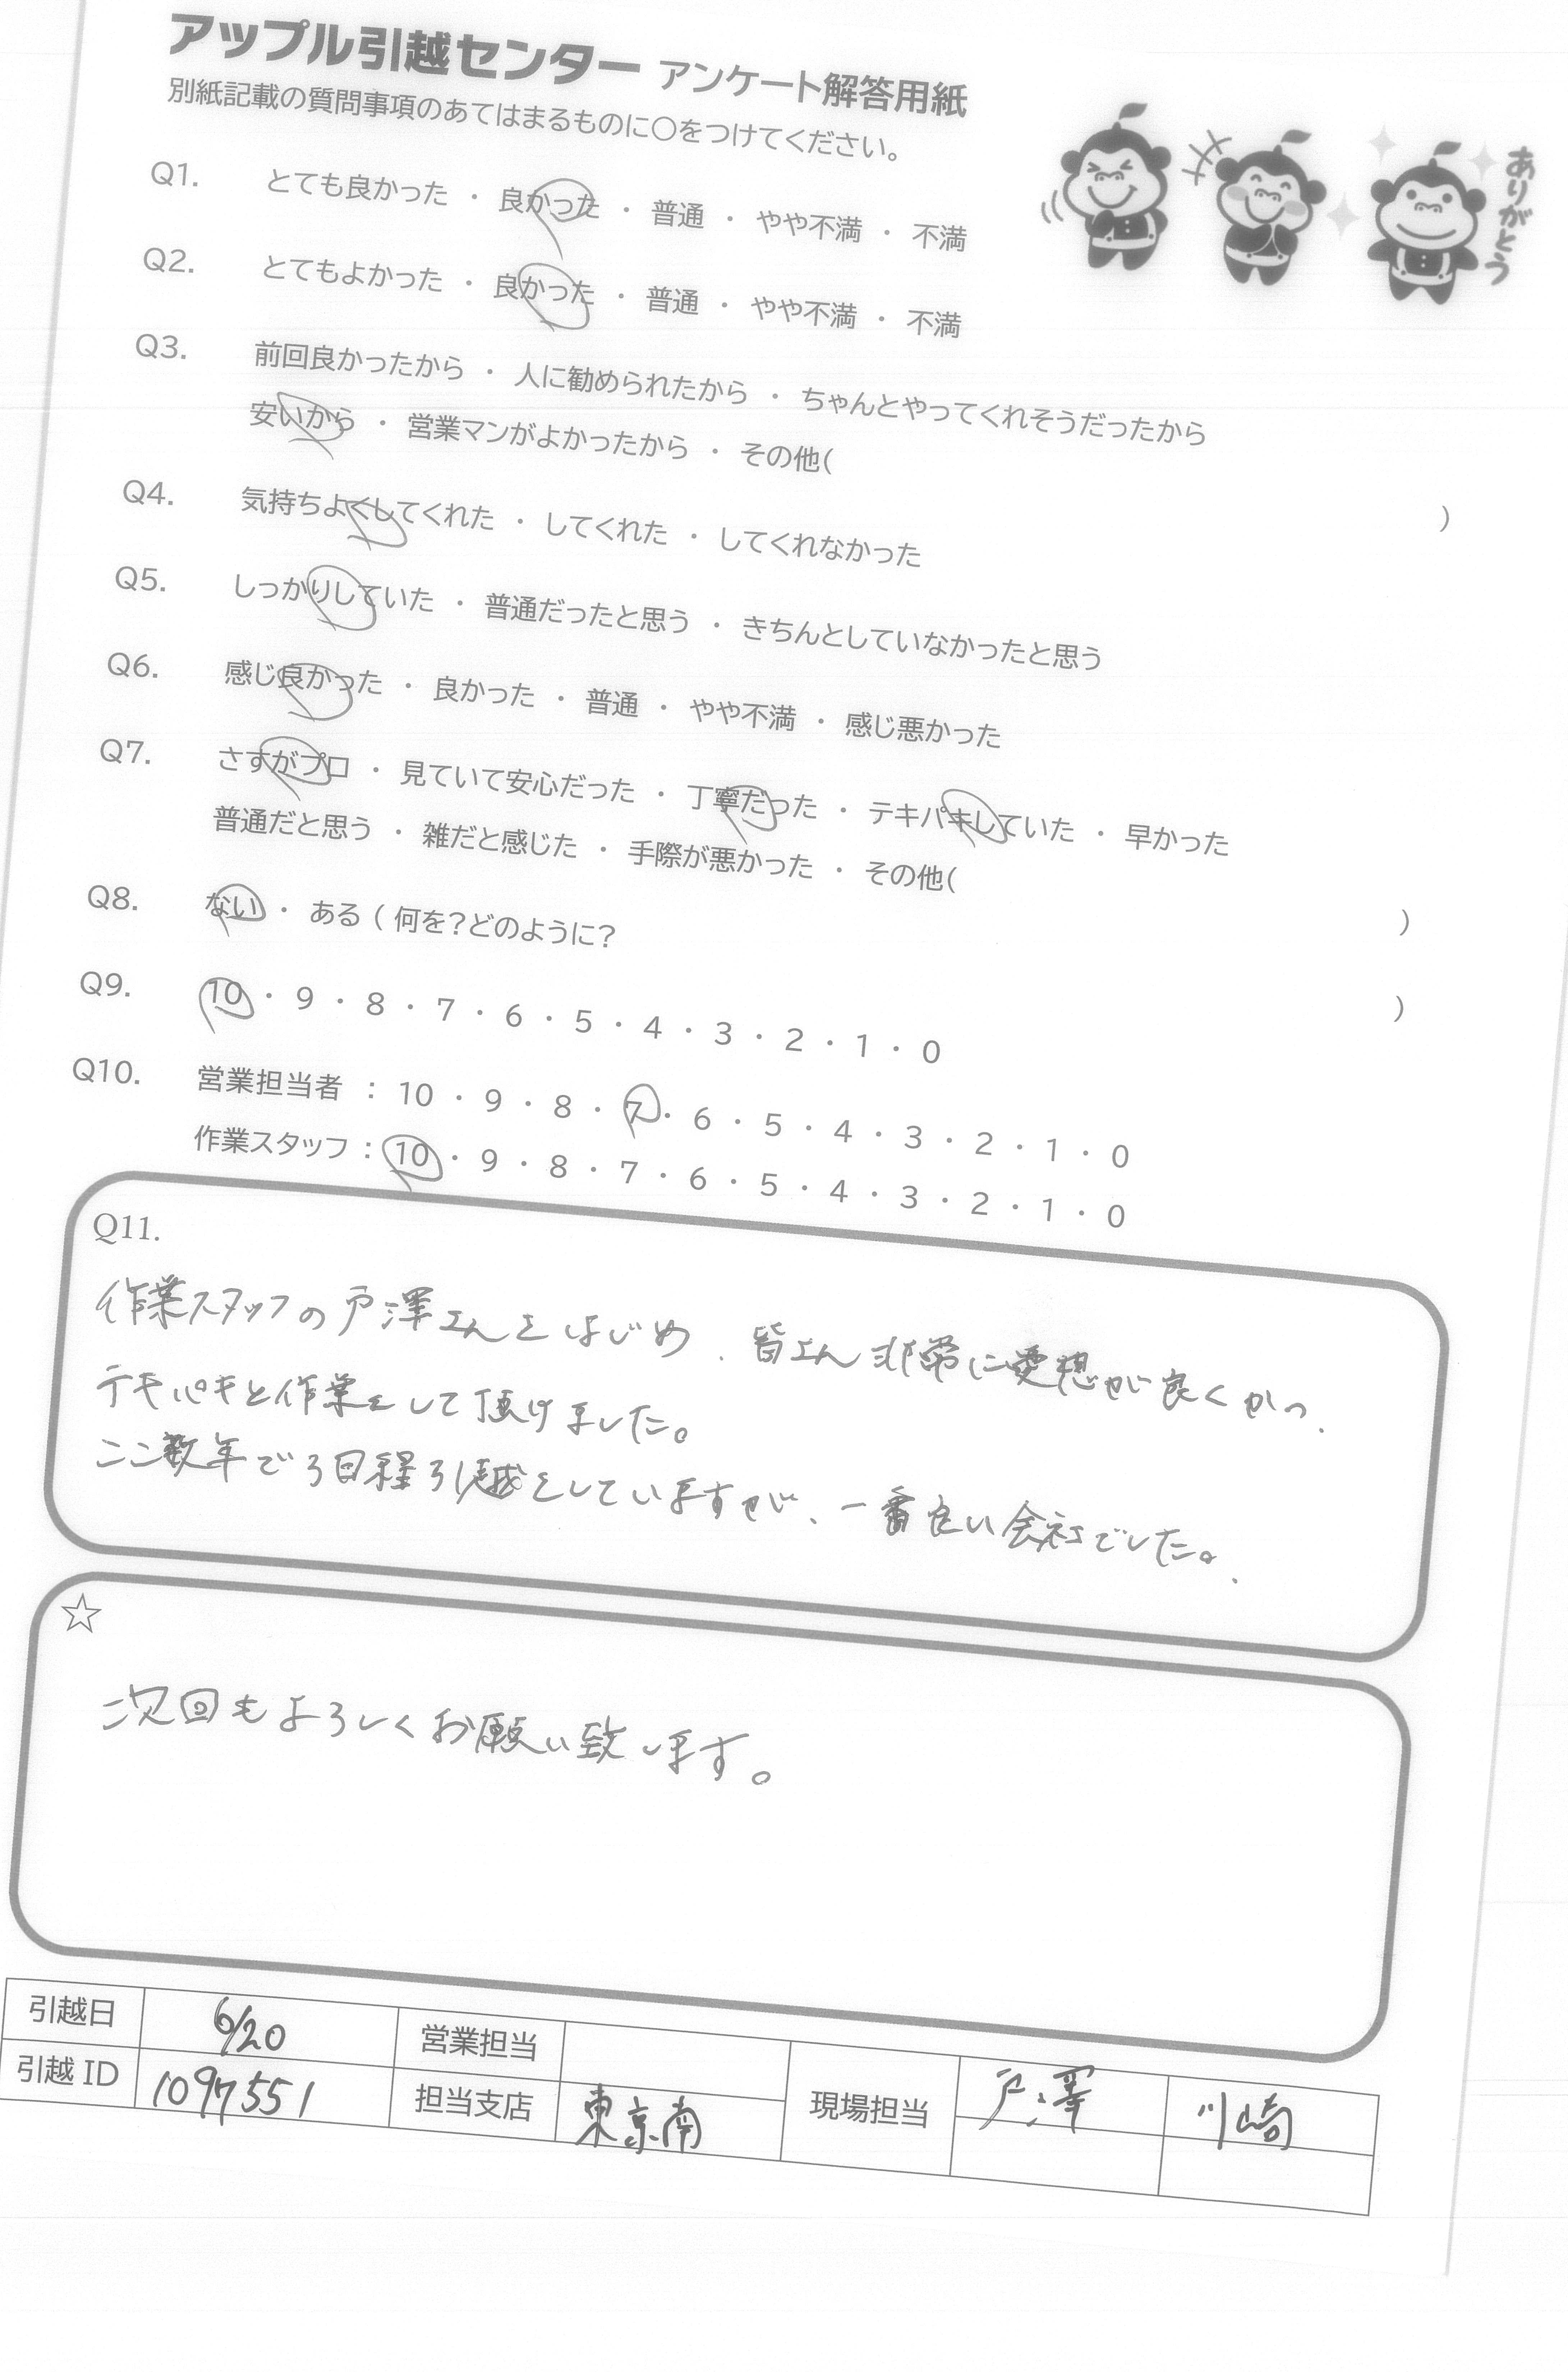 アップル引越センター アンケート解答用紙
別紙記載の質問事項のあてはまるものに〇をつけてください。
ありがとう
Q1. とても良かった ・ 良かった ・ 普通 ・ やや不満 ・ 不満
Q2. とてもよかった ・ 良かった ・ 普通 ・ やや不満 ・ 不満
Q3. 前回良かったから ・ 人に勧められたから ・ ちゃんとやってくれそうだったから
安いから ・ 営業マンがよかったから ・ その他( )
Q4. 気持ちよくしてくれた ・ してくれた ・ してくれなかった
Q5. しっかりしていた ・ 普通だったと思う ・ きちんとしていなかったと思う
Q6. 感じ良かった ・ 良かった ・ 普通 ・ やや不満 ・ 感じ悪かった
Q7. さすがプロ ・ 見ていて安心だった ・ 丁寧だった ・ テキパキしていた ・ 早かった
普通だと思う ・ 雑だと感じた ・ 手際が悪かった ・ その他( )
Q8. ない ・ ある ( 何を?どのように? )
Q9. 10 ・ 9 ・ 8 ・ 7 ・ 6 ・ 5 ・ 4 ・ 3 ・ 2 ・ 1 ・ 0
Q10. 営業担当者 : 10 ・ 9 ・ 8 ・ 7 ・ 6 ・ 5 ・ 4 ・ 3 ・ 2 ・ 1 ・ 0
作業スタッフ : 10 ・ 9 ・ 8 ・ 7 ・ 6 ・ 5 ・ 4 ・ 3 ・ 2 ・ 1 ・ 0
Q11.
作業スタッフの戸澤さんをはじめ、皆さん非常に愛想が良くかつ、
テキパキと作業をして頂けました。
ここ数年で3回程引越をしていますが、一番良い会社でした。
☆
次回もよろしくお願い致します。
引越日 6/20 営業担当 現場担当 戸澤 川崎
引越ID 1097551 担当支店 東京南